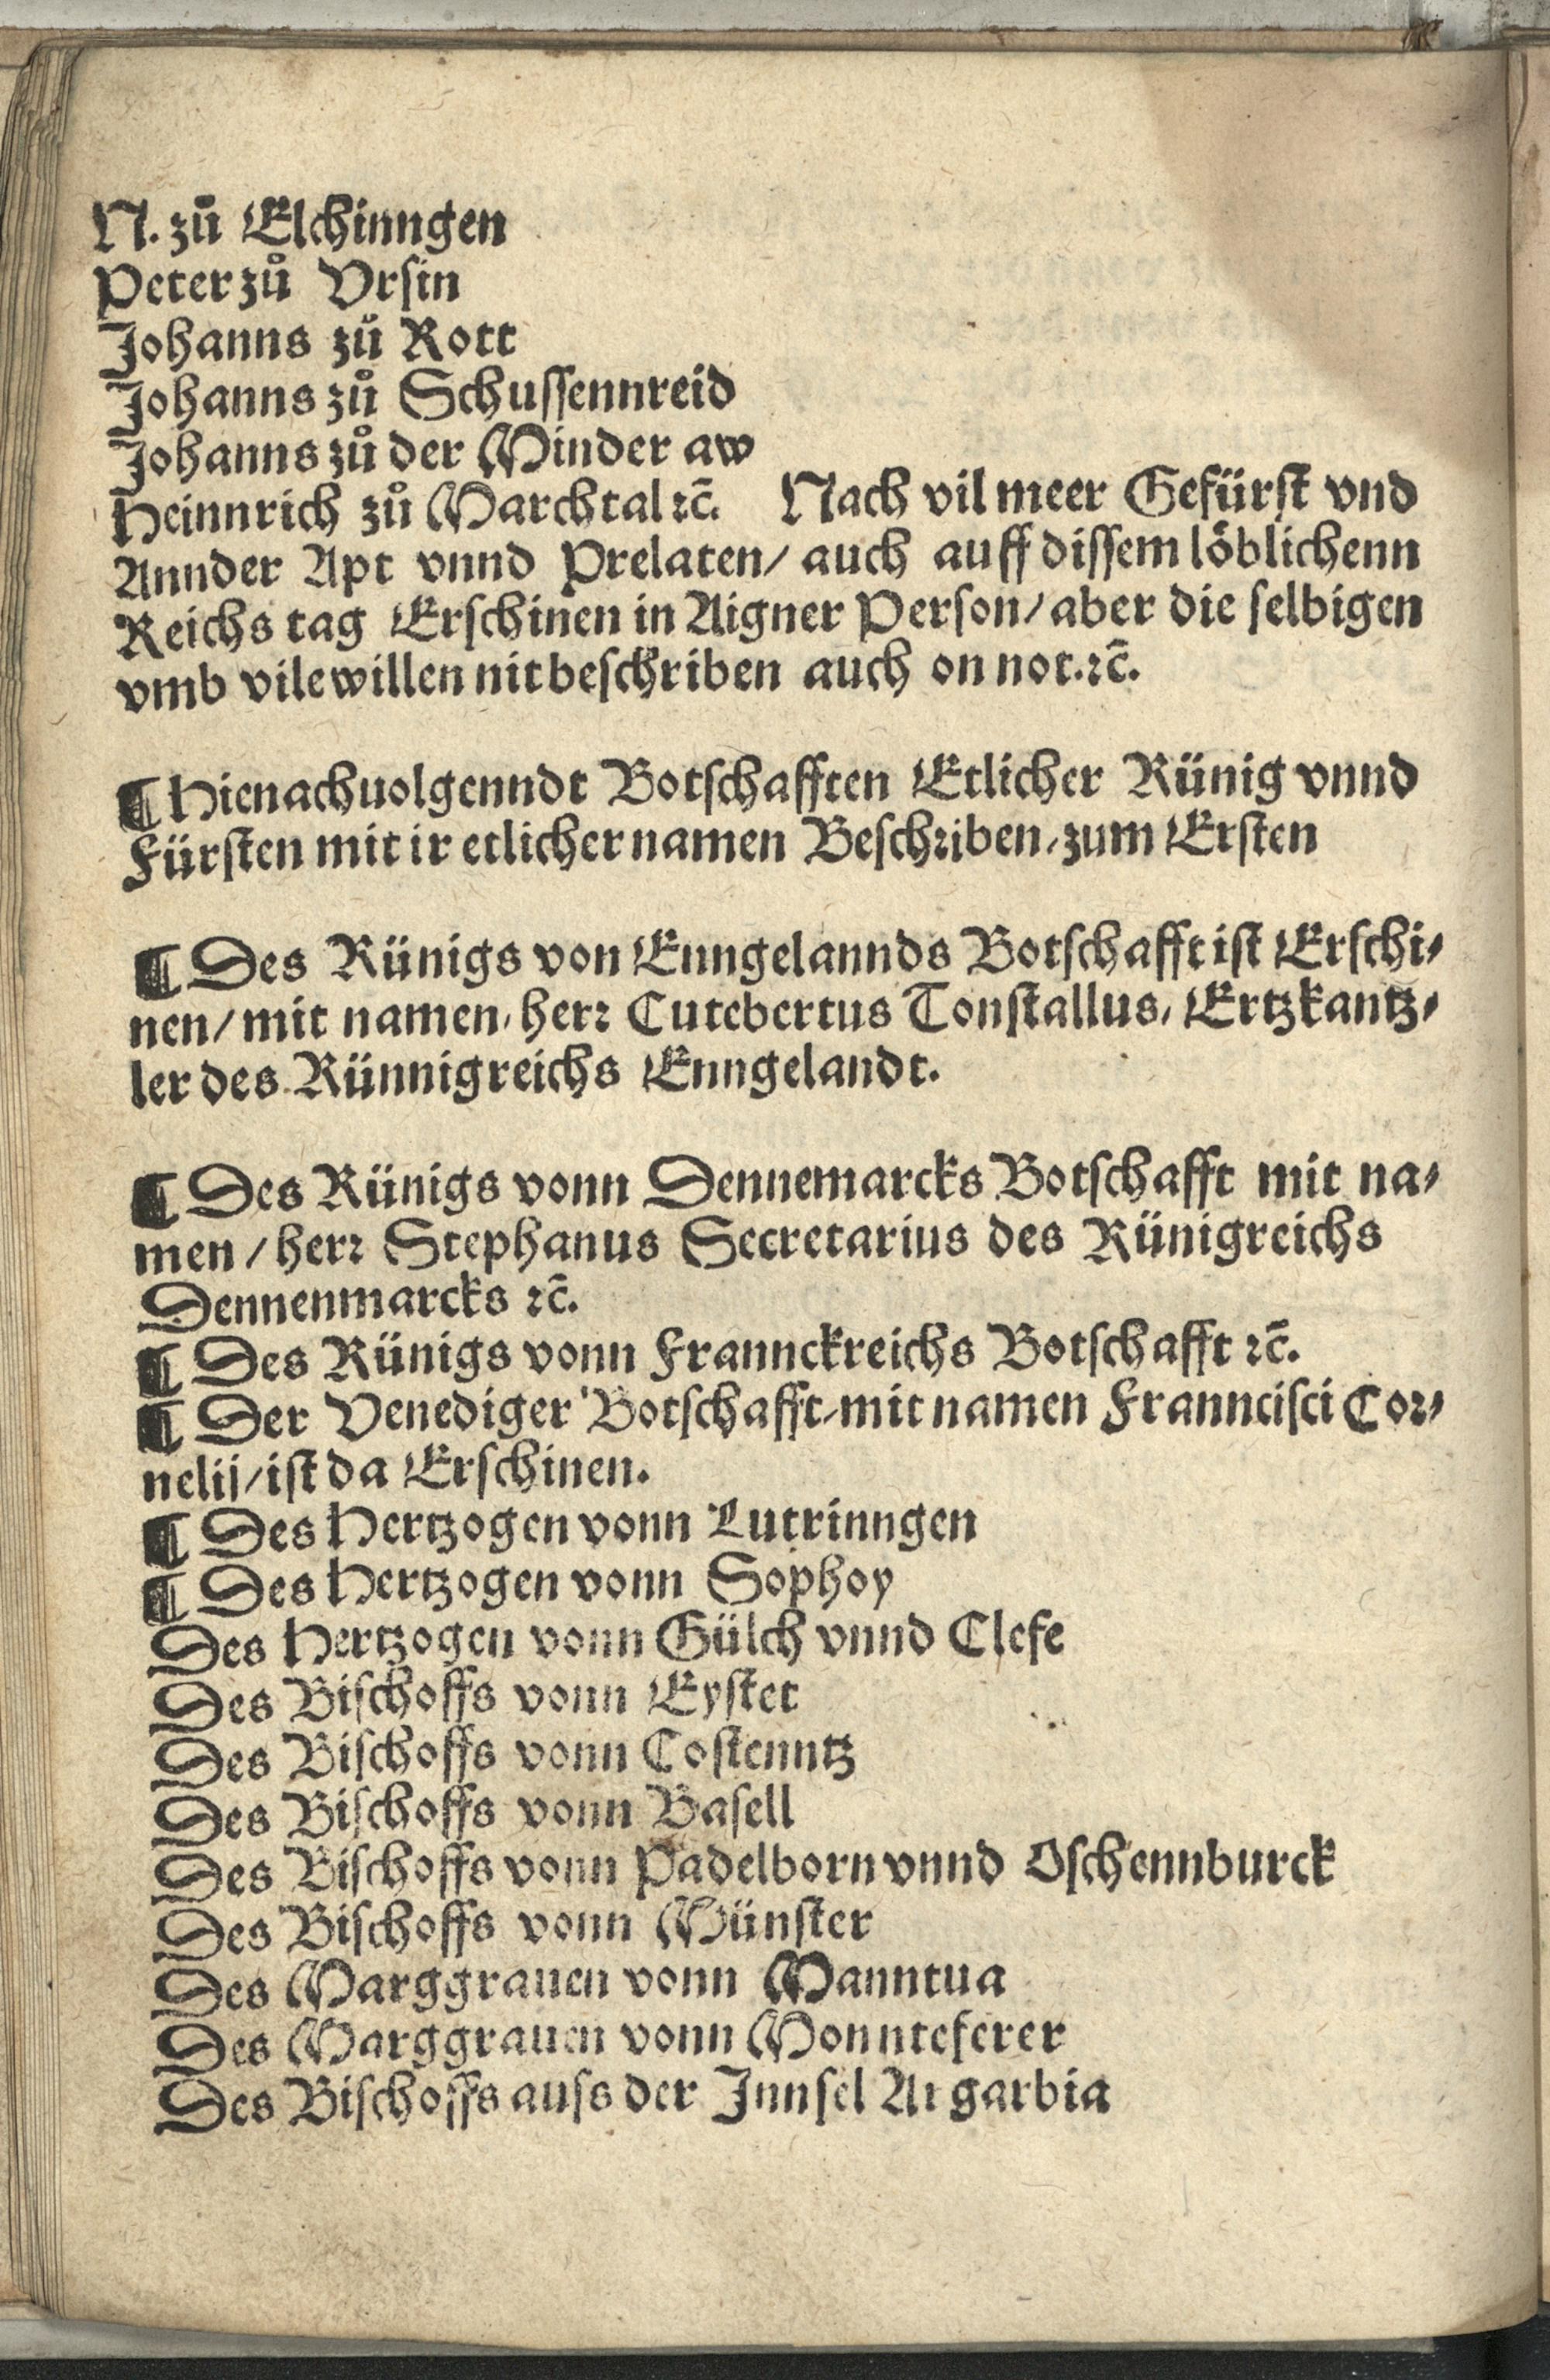 N. zů Elchinngen
Peter zů Vrsin
Johanns zů Rott
Johanns zů Schussennreid
Johanns zů der Minder aw
Heinnrich zů Marchtal ꝛc̄. Nach vil meer Gefürst vnd
Annder Apt vnnd Prelaten/ auch auff dissem löblichenn
Reichs tag Erschinen in Aigner Person/ aber die selbigen
vmb vile willen nit beschriben auch on not. ꝛc̄.
¶ Hienachuolgenndt Botschafften Etlicher Künig vnnd
Fürsten mit ir etlicher namen Beschriben/ zum Ersten
¶ Des Künigs von Enngelannds Botschafft ist Erschi⸗
nen/ mit namen/ herr Cutebertus Tonstallus/ Ertzkantz⸗
ler des Künnigreichs Enngelandt.
¶ Des Künigs vonn Dennemarcks Botschafft mit na⸗
men/ herr Stephanus Secretarius des Künigreichs
Dennenmarcks ꝛc̄.
¶ Des Künigs vonn Frannckreichs Botschafft ꝛc̄.
¶ Der Venediger Botschafft/ mit namen Franncisci Cor⸗
nelij/ ist da Erschinen.
¶ Des Hertzogen vonn Lutrinngen
¶ Des Hertzogen vonn Sophoy
Des Hertzogen vonn Gülch vnnd Clefe
Des Bischoffs vonn Eystet
Des Bischoffs vonn Costenntz
Des Bischoffs vonn Basell
Des Bischoffs vonn Padelborn vnnd Oschennburck
Des Bischoffs vonn Münster
Des Marggrauen vonn Manntua
Des Marggrauen vonn Monnteferer
Des Bischoffs auss der Innsel Argarbia